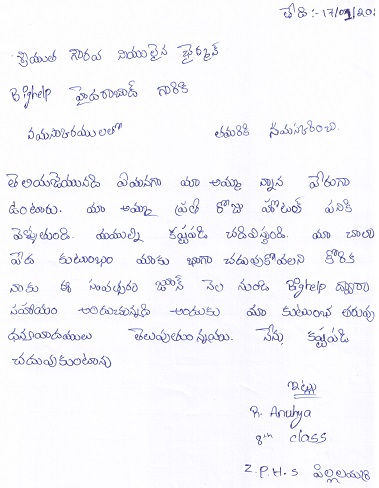 తేది :- 17/01/20
శ్రీయుత గౌరవ నీయులైన ఛైర్మన్
Bighelp హైదరాబాద్ గారికి
నమస్కారములతో తమరికి నమస్కరించి.
తెలియజేయునది ఏమనగా మా అమ్మ నాన్న వేరుగా
ఉంటారు. మా అమ్మ ప్రతి రోజు హోటల్ పనికి
వెళ్ళుతుంది. మమల్ని కష్టపడి చదివిస్తుంది. మా చాలా
పేద కుటుంబం మాకు బాగా చదువుకోవాలని కోరిక
నాకు ఈ సంవత్సరం జూన్ నెల నుండి Bighelp ద్వారా
సహాయం అందుచున్నది అందుకు మా కుటుంబ తరుపు
ధన్యవాదములు తెలుపుతున్నాము. నేను కష్టపడి
చదువుకుంటాను
ఇట్లు
R. Anuhya
8th class
Z.P.H.s